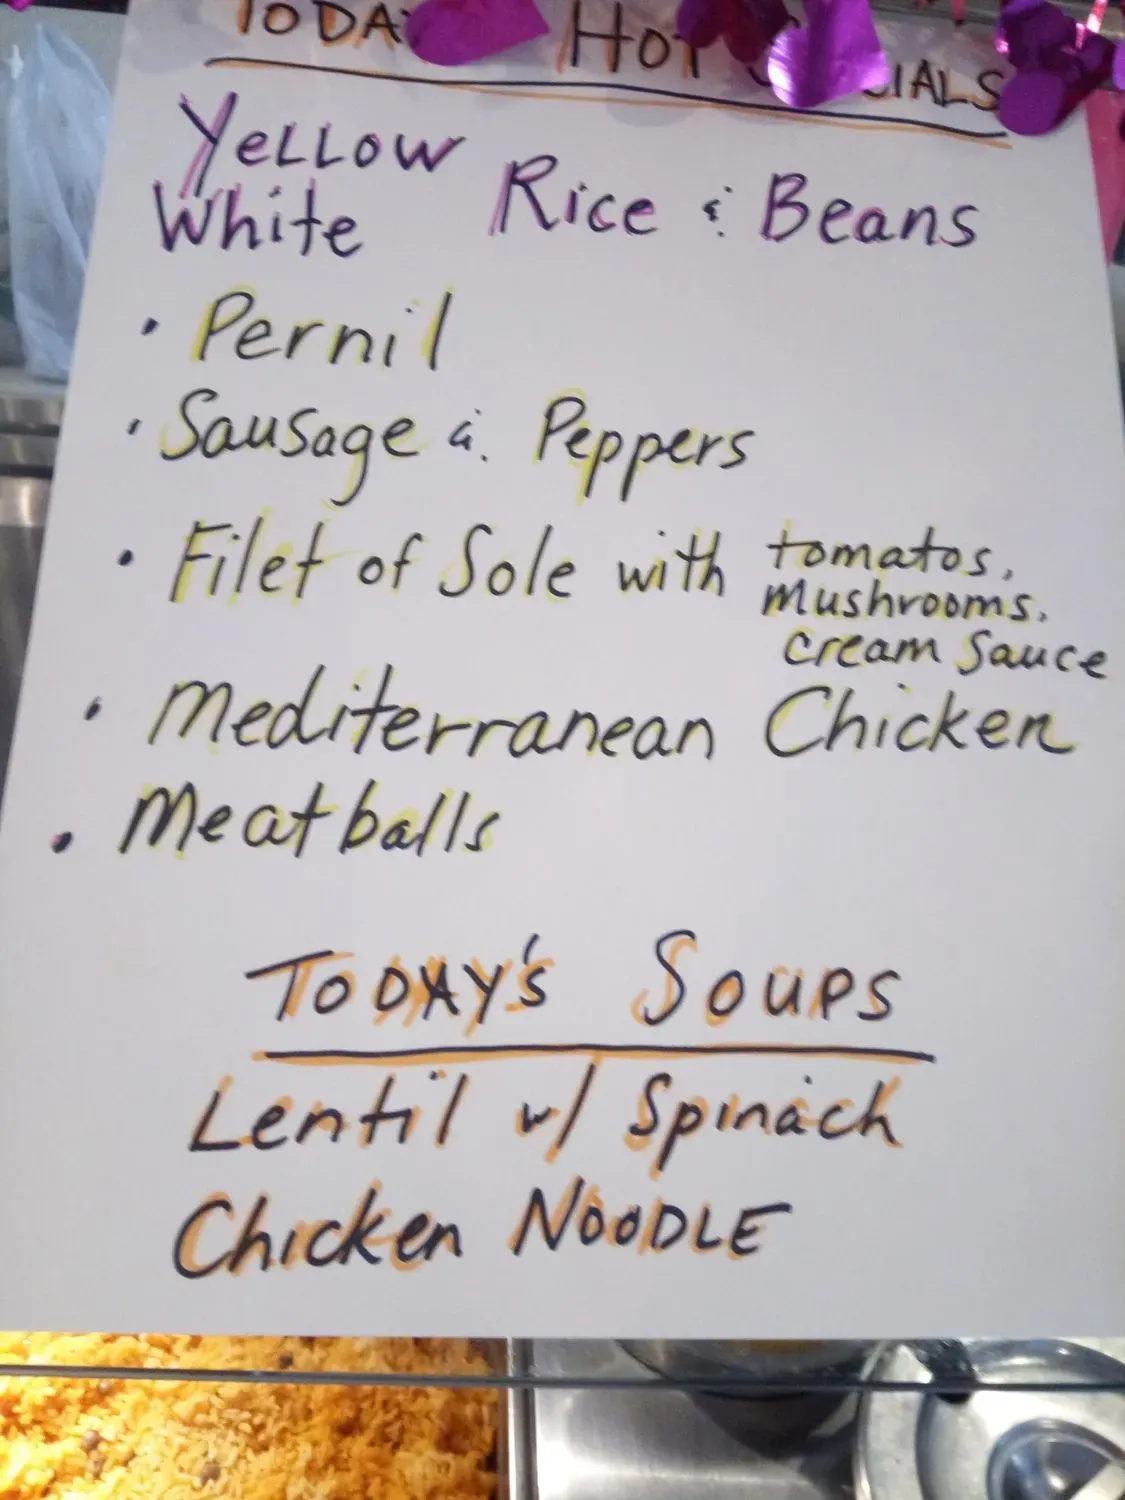 TODAY HOT SPECIALS
YELLOW
White Rice & Beans
• Pernil
• Sausage & Peppers
• Filet of Sole with tomatos,
mushrooms,
cream Sauce
• Mediterranean Chicken
• Meatballs
TODAY'S SOUPS
Lentil w/ Spinach
Chicken NOODLE